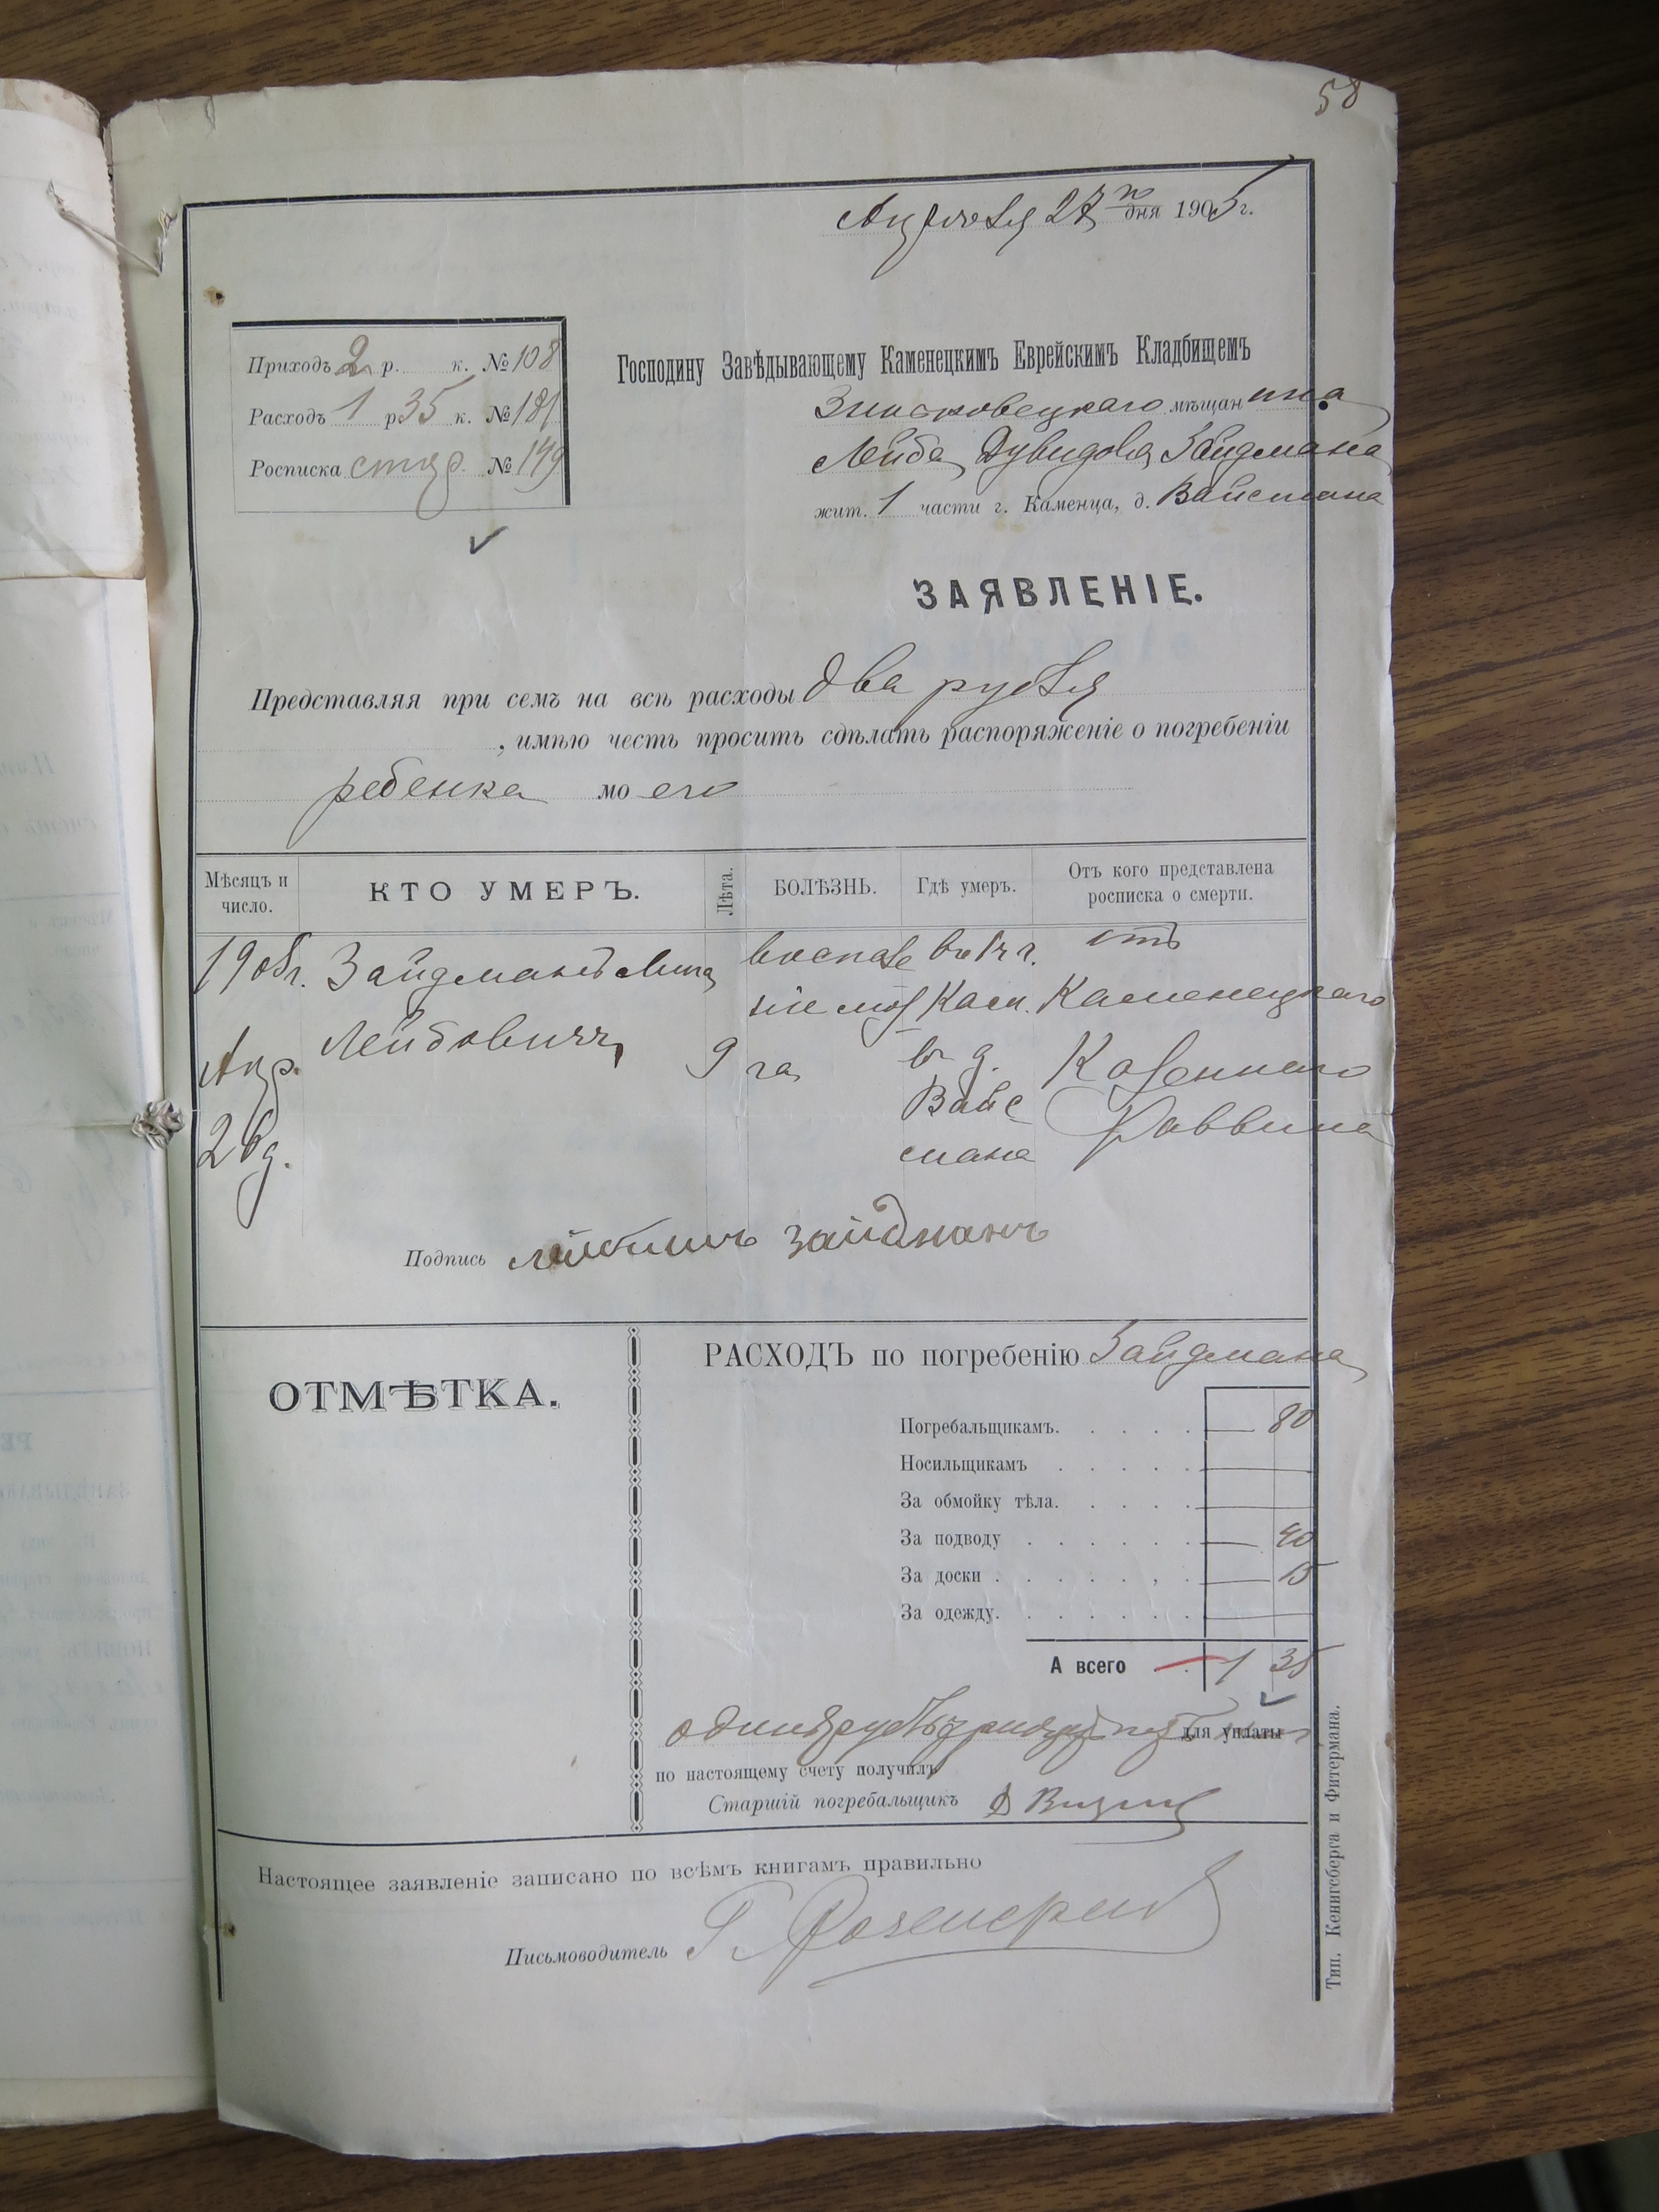 58
Апреля 27 го дня 1905 г.
Приходъ 2 р. к. № 108
Расходъ 1 р 35 к. № 181
Росписка стар. № 149
Господину Завѣдывающему Каменецкимъ Еврейскимъ Кладбищемъ
Зиньковецкаго мѣщанина
Лейба Дувидовъ Зайдмана
жит. 1 части г. Каменца, д. Вайсмана
ЗАЯВЛЕНІЕ.
Представляя при семъ на всѣ расходы два рубля
, имѣю честь просить сдѣлать распоряженіе о погребеніи
ребенка моего
Мѣсяцъ и число.
КТО УМЕРЪ.
Лѣта.
БОЛѢЗНЬ.
Гдѣ умеръ.
Отъ кого представлена росписка о смерти.
1905 г. Зайдманъ воспале въ 1 ч г. отъ
ніе моз Кам. Каменецкаго
Апр. Лейбовичъ 9 га въ д. Казеннаго
26 д. Вайс Раввина
мана
Подпись Зайдманъ
ОТМѢТКА.
РАСХОДЪ по погребенію Зайдмана
Погребальщикамъ. — 80
Носильщикамъ
За обмойку тѣла.
За подводу — 40
За доски — 15
За одежду.
А всего 1 35
одинъ рубль тридцать пять для уплаты
по настоящему счету получилъ
Старшій погребальщикъ
Настоящее заявленіе записано по всѣмъ книгамъ правильно
Письмоводитель
Тип. Кенигсберга и Фитермана.